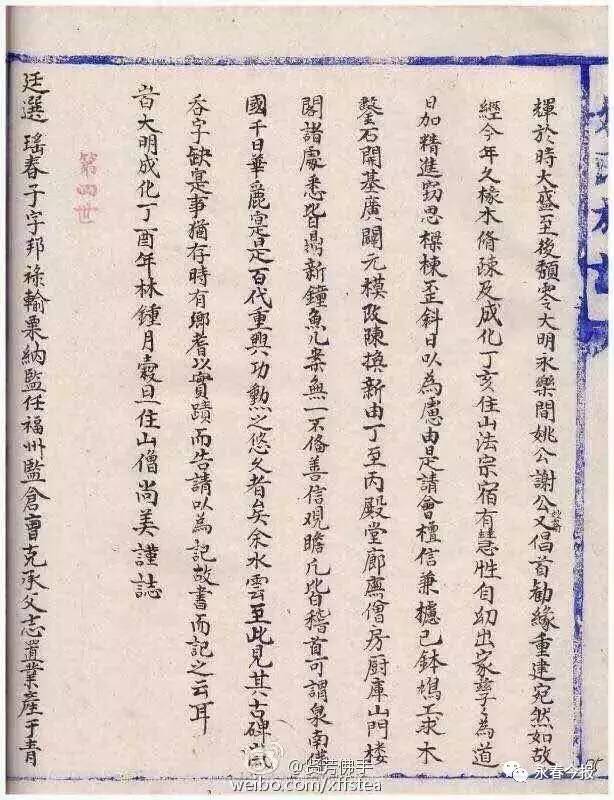 輝於時大盛至後頽零大明永樂間姚公謝公又倡首勧緣重建宛然如故
經今年久椽木脩疎及成化丁亥住山法宗宿有慧性自幼出家孳〻為道
日加精進竊思樑棟歪斜日以為慮由是請會檀信兼攄己鉢鳩工求木
鑿石開基廣闢元模改陳換新由丁至丙殿堂廊廡僧房厨庫山門楼
閣諸處悉皆鼎新鐘魚几案無一不俻善信观瞻凡皆稽首可謂泉南佛
國千日華麗寔是百代重興功勲之悠久者矣余水雲至此見其古碑
吞字缺寔事猶存時有鄉耆以實蹟而告請以為記故書而記之云耳
旹大明成化丁酉年林鍾月穀旦住山僧尚美謹誌
第四世
廷選 瑤春子字邦祿輸粟納監任福州監倉曹克承父志置業產于青
@佟芳佛手
weibo.com/xffstea
永春今报